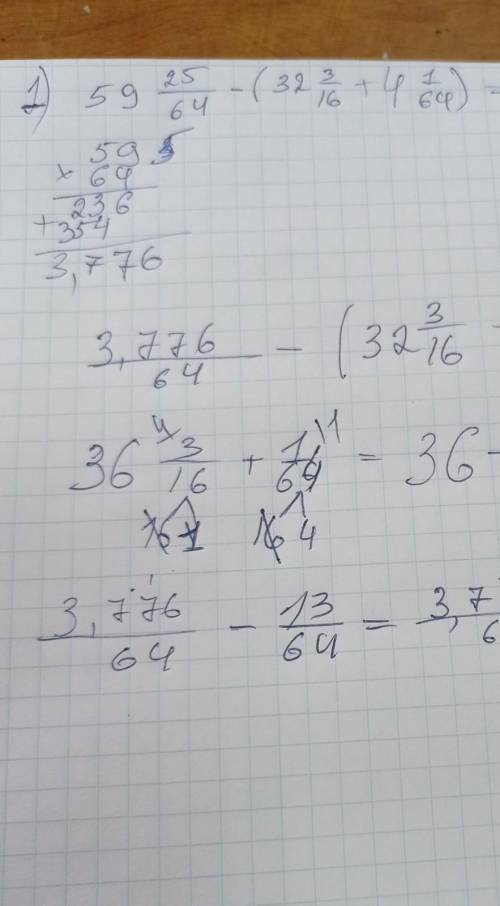 1) 59 25/64 - (32 3/16 + 4 1/64) =
59
× 64
236
+ 354
3,776
3,776/64 - (32 3/16
36 3/16 + 1/64 = 36
16 1 16 4
3,776/64 - 13/64 = 3,7/6